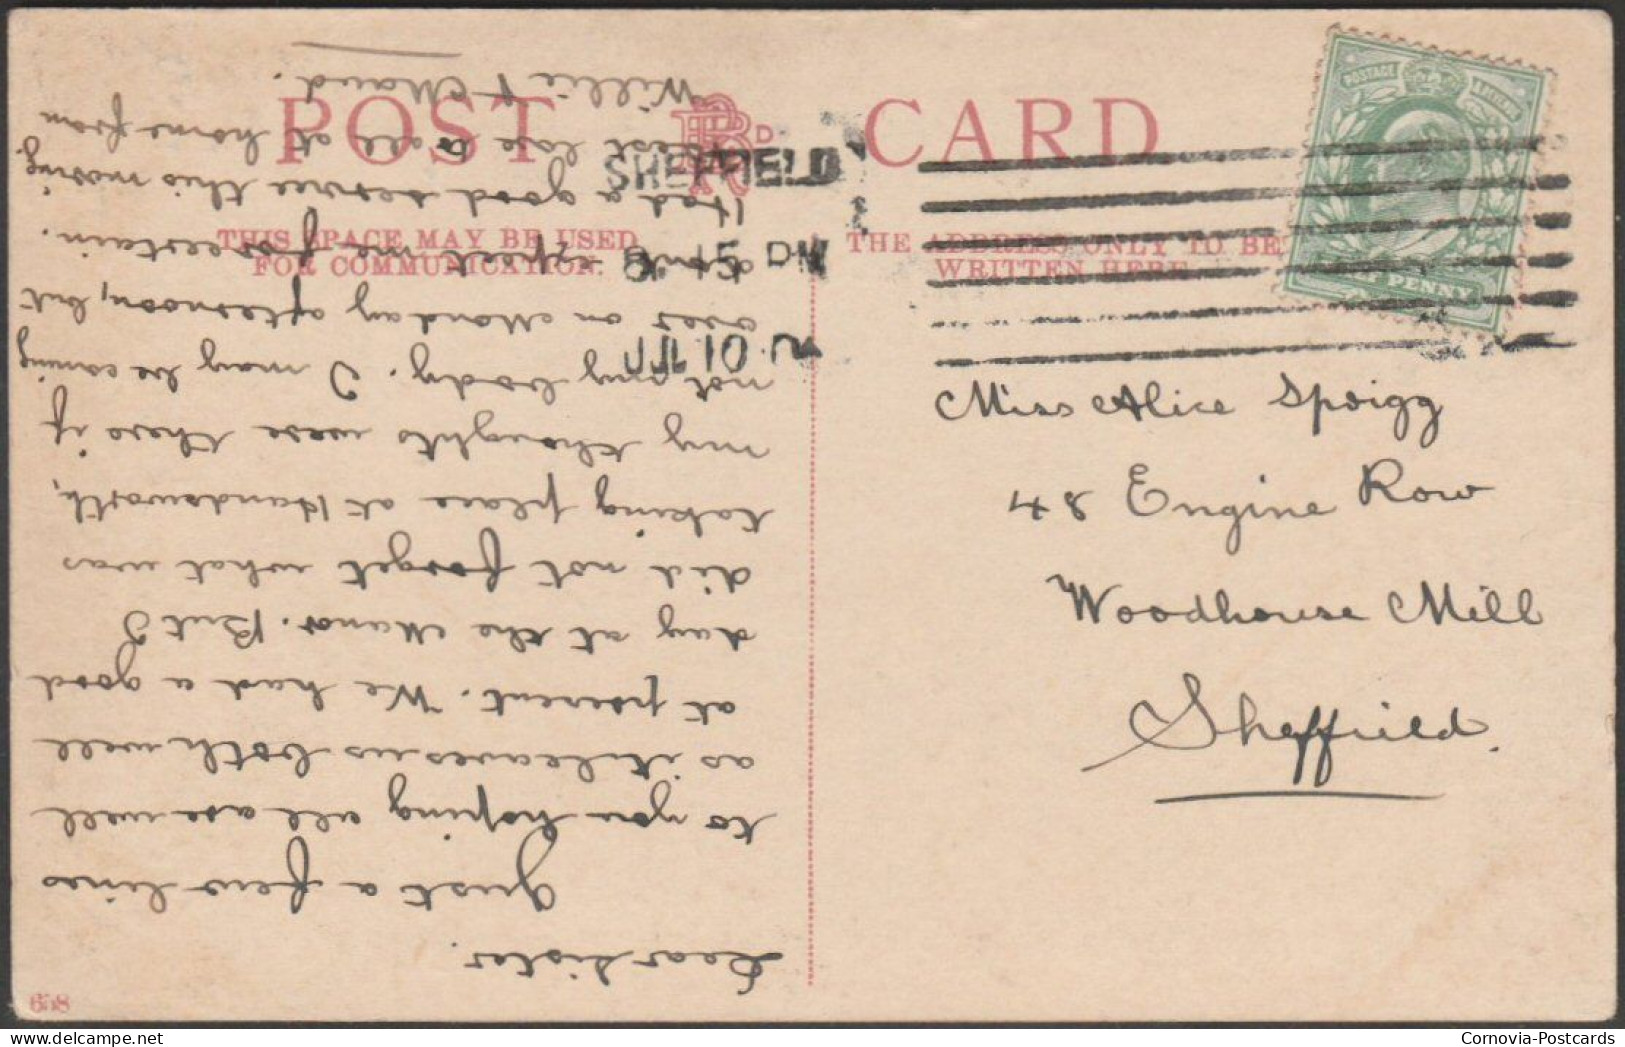 POST CARD
R R D
THIS SPACE MAY BE USED
FOR COMMUNICATION.
THE ADDRESS ONLY TO BE
WRITTEN HERE
SHEFFIELD
15 PM
JUL 10
POSTAGE & REVENUE
PENNY
Miss Alice Sprigg
48 Engine Row
Woodhouse Mill
Sheffield.
Dear Sister.
Just a few lines
to you hoping all are well
as it leaves us both well
at present. We had a good
day at the Manor. But I
did not forget what was
taking place at Handsworth,
my thoughts were there if
not my body. I may be coming
over on Monday afternoon, but
dont expect me for certain.
Had a good service this morning.
Best love to all at home from
Willie & Maud.
658
Cornovia-Postcards